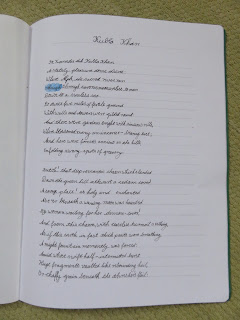 Kubla Khan
In Xanadu did Kubla Khan
A stately pleasure dome decree:
Where Alph, the sacred river, ran
Through caverns measureless to man
Down to a sunless sea.
So twice five miles of fertile ground
With walls and towers were girdled round:
And there were gardens bright with sinuous rills,
Where blossomed many an incense-bearing tree;
And here were forests ancient as the hills
Enfolding sunny spots of greenery.
that deep romantic chasm which slanted
Down the green hill athwart a cedarn cover!
A savage place! as holy and enchanted
As e'er beneath a waning moon was haunted
By woman wailing for her demon-lover!
And from this chasm, with ceaseless turmoil seething
As if this earth in fast thick pants were breathing
A mighty fountain momently was forced:
Amid whose swift half-intermitted burst
Huge fragments vaulted like rebounding hail,
Or chaffy grain beneath the thresher's flail: